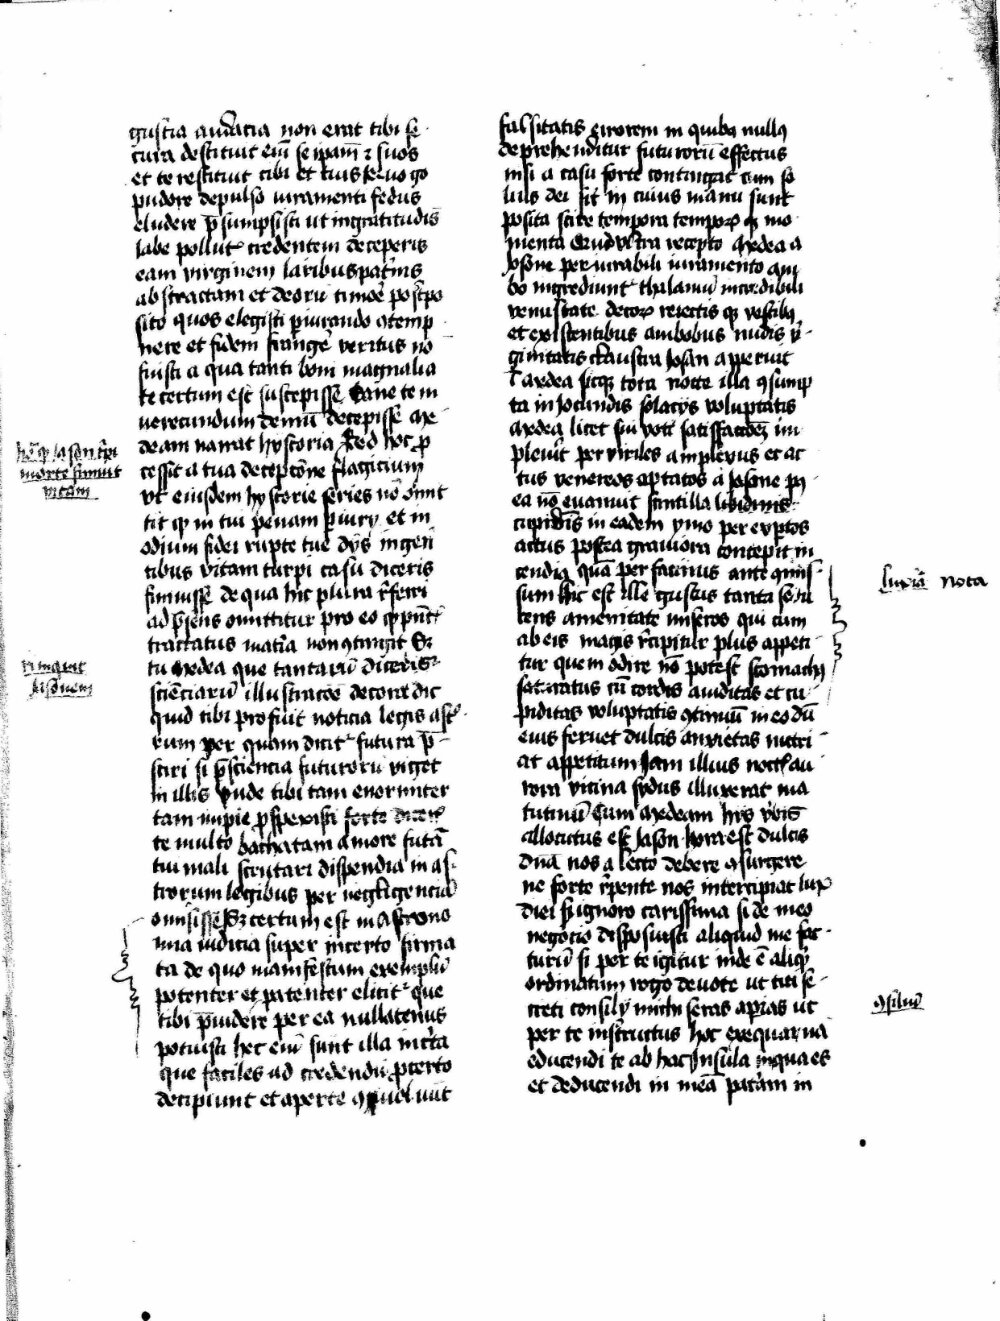 gustia audatia non erat tibi se
cura destituit eni se ipam ⁊ suos
et te restituit tibi et tuis sed uo go
pudore depulso iuramenti fedus
eludere psumpsisti ut ingratitudis
labe pollut credentem deceperis
eam virginem laribus patnis
abstractam et deoru timoe postpo
sito quos elegisti piurando ꝯtemp
nere et fidem frange veritus no
fuisti a qua tanti boni magnalia
te certum est suscepisse Sane te in
verecundum demu decepisse me
deam narrat hystoria Sed hoc p
cessit a tua deceptoe flagitium
ut eiusdem hystorie series no omit
tit qꝫ in tui penam piurij et in
odium fidei rupte tue dijs ingen
tibus vitam turpi casu diceris
finiuisse de qua hic plura rferri
ad psens omittitur pro eo qꝫ pnt
tractatus matia non ꝯtingit Sꝫ
tu medea que tantaru diceris
scienciaru illustracoe decora dic
quid tibi profuit noticia legis ast
rum per quam dicit futura p
sciri si psciencia futuroru viget
in illis unde tibi tam enormiter
tam impie pspexisti forte dicet
te multo bachatam amore futa
tui mali scrutari dispendia in as
trorum legibus per negligencia
omisisse Sꝫ certum est in Astrono
mia iudicia super incerto firma
ta de quo manifestum exemplu
potenter et patenter elicit que
tibi puidere per ea nullatenus
potuisti hec eni sunt illa incta
que faciles ad credendu pcerto
decipiunt et aperte
hoc qꝫ Jason tpi
morte finiuit
vitam
falsitatis errorem in quibꝫ nullꝫ
deprehenditur futuroru effectus
nisi a casu forte contingat cum so
lius dei sit in cuius manu sunt
posita scire tempora temporꝝ qꝫ mo
menta Quid ultra recepto Medea a
Josone per iurabili iuramento am
bo ingrediunt thalamu incredibili
venustate decorꝝ reiectis qꝫ vestibꝫ
et existentibus ambobus nudis v
ginitatis claustra Josan apperuit
I medea sicqꝫ tota nocte illa ꝯsump
ta in Jocundis solacijs voluptatis
Medea licet sui voti satisfactoꝫ im
pleuit per viriles amplexus et ac
tus venereos optatos a Jasone pᷓ
ea no euanuit scintilla libidinis
cupidis in eadem ymo per exptos
actus postea grauiora concepit in
cendia qua per facinus ante ꝯmis
sum hic est ille gustus tanta sodu
cens amenitate miseros qui cum
ab eis magis rcapitur plus appeti
tur quem odire no potest stomachꝫ
saturatus cu cordis auiditas et cu
piditas voluptatis ꝯtinuu in eo du
eius feruet dulcis anxietas nutri
at appetitum Jam illius nocts au
rora vicina sydus illuxerat ma
tutinu Cum Medeam hijs vbis
allocutus est Jason hora est dulcis
dna nos a lecto debere ꝯsurgere
ne forte rpente nos intercipiat lux
diei si ignoro carissima si de meo
negotio disposuisti aliquid me fac
turu si per te igitur inde e aliqꝫ
ordinatum rogo deuote ut tui se
creti consilij michi seras aprias ut
per te instructus hoc exequar na
educendi te ab hac Jnsula in qua es
et deducendi in mea patam in
luxia nota
ꝯsiliu